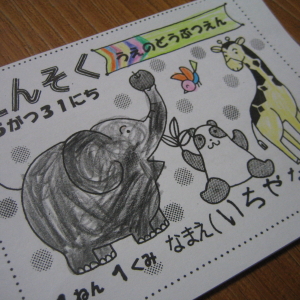 えんそく
うえのどうぶつえん
5がつ31にち
1ねん 1くみ
なまえ(いちゃ な